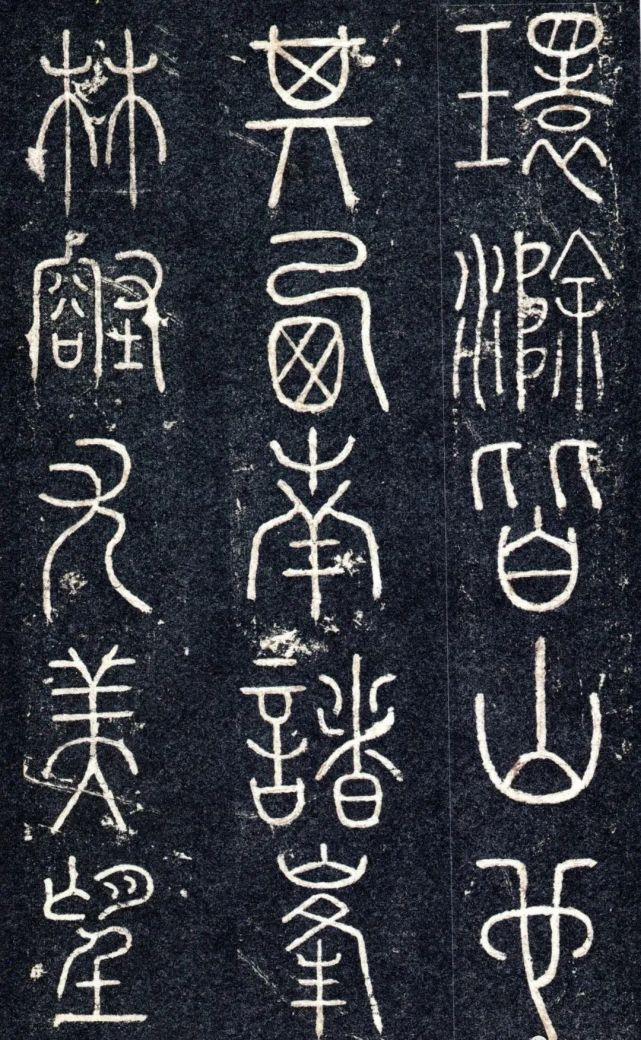 環滁皆山也
其西南諸峯
林壑尤美望